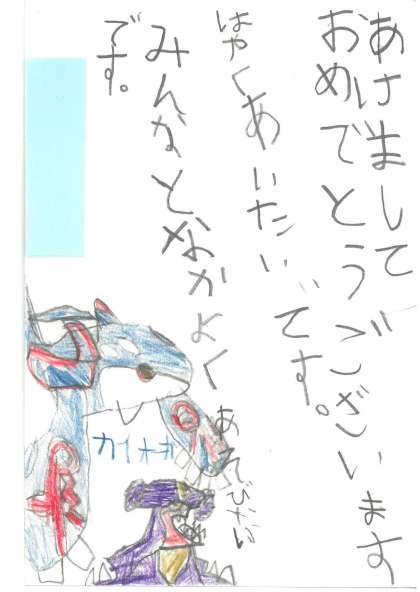 あけまして
おめでとうございます
はやくあいたいです。
みんなとなかよくあそびたい
です。
カイオーガ